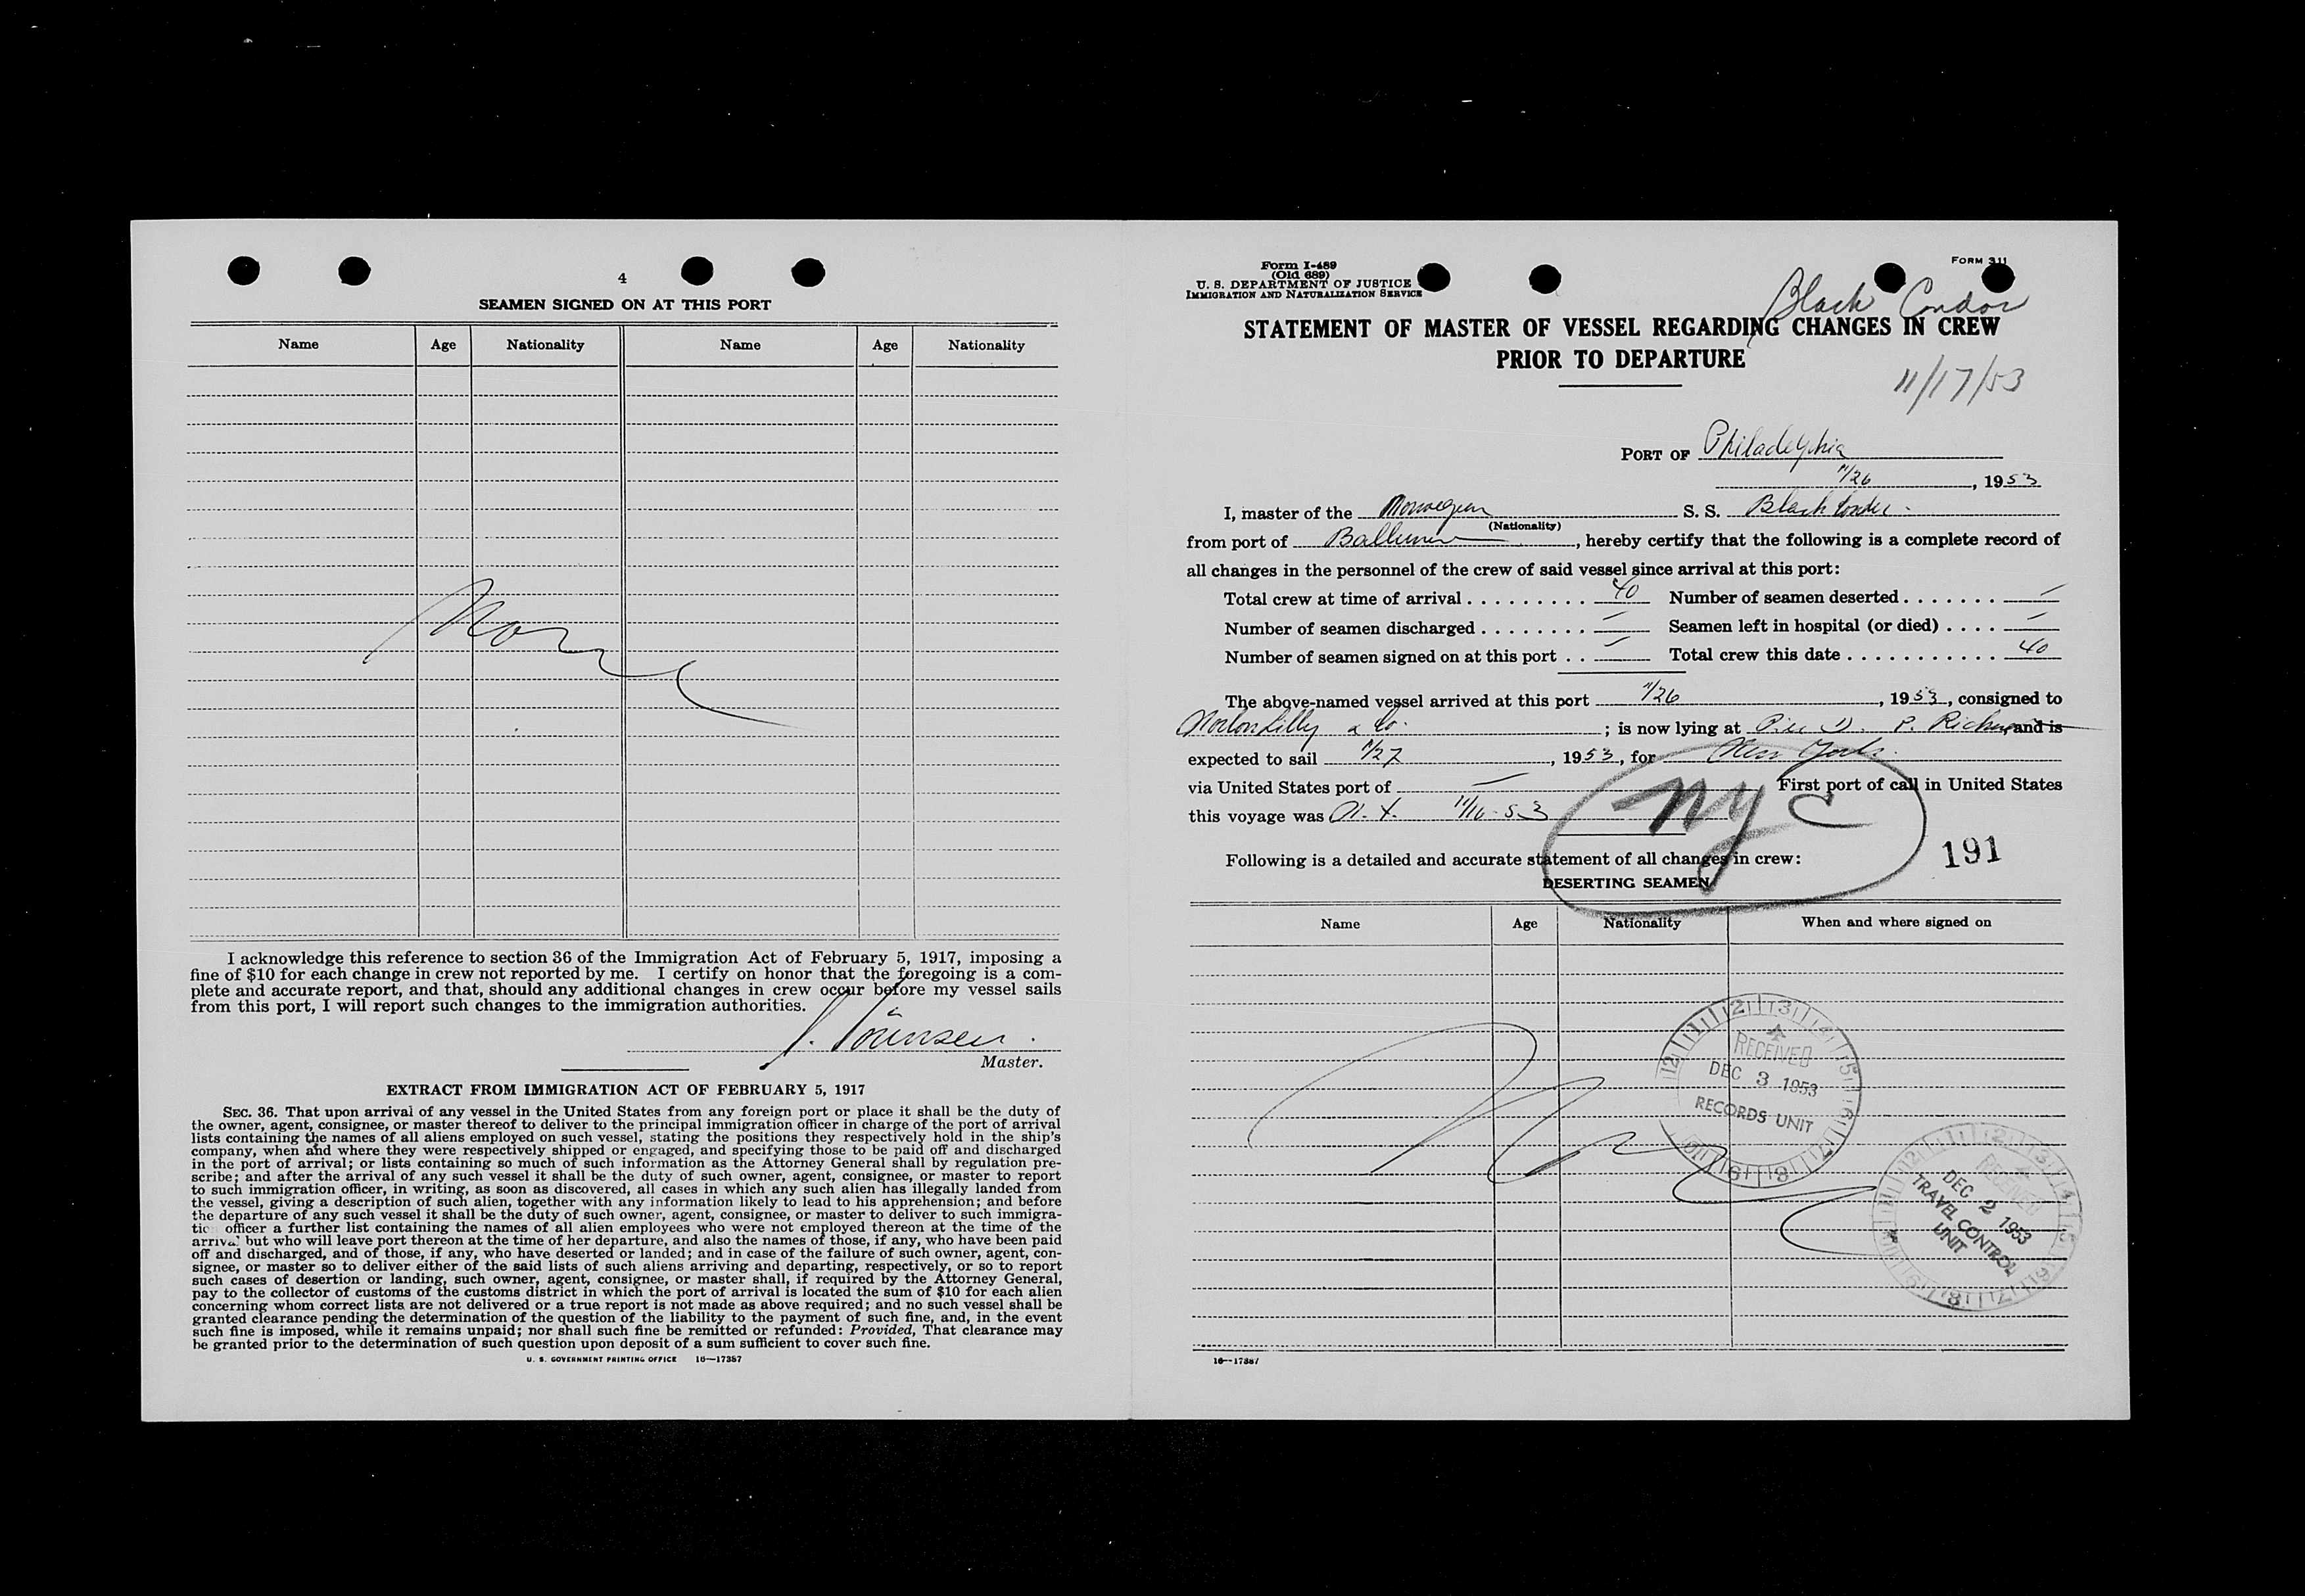 4
SEAMEN SIGNED ON AT THIS PORT
Name Age Nationality Name Age Nationality
None
I acknowledge this reference to section 36 of the Immigration Act of February 5, 1917, imposing a
fine of $10 for each change in crew not reported by me. I certify on honor that the foregoing is a com-
plete and accurate report, and that, should any additional changes in crew occur before my vessel sails
from this port, I will report such changes to the immigration authorities.
Master.
EXTRACT FROM IMMIGRATION ACT OF FEBRUARY 5, 1917
SEC. 36. That upon arrival of any vessel in the United States from any foreign port or place it shall be the duty of
the owner, agent, consignee, or master thereof to deliver to the principal immigration officer in charge of the port of arrival
lists containing the names of all aliens employed on such vessel, stating the positions they respectively hold in the ship's
company, when and where they were respectively shipped or engaged, and specifying those to be paid off and discharged
in the port of arrival; or lists containing so much of such information as the Attorney General shall by regulation pre-
scribe; and after the arrival of any such vessel it shall be the duty of such owner, agent, consignee, or master to report
to such immigration officer, in writing, as soon as discovered, all cases in which any such alien has illegally landed from
the vessel, giving a description of such alien, together with any information likely to lead to his apprehension; and before
the departure of any such vessel it shall be the duty of such owner, agent, consignee, or master to deliver to such immigra-
tio officer a further list containing the names of all alien employees who were not employed thereon at the time of the
arrival but who will leave port thereon at the time of her departure, and also the names of those, if any, who have been paid
off and discharged, and of those, if any, who have deserted or landed; and in case of the failure of such owner, agent, con-
signee, or master so to deliver either of the said lists of such aliens arriving and departing, respectively, or so to report
such cases of desertion or landing, such owner, agent, consignee, or master shall, if required by the Attorney General,
pay to the collector of customs of the customs district in which the port of arrival is located the sum of $10 for each alien
concerning whom correct lists are not delivered or a true report is not made as above required; and no such vessel shall be
granted clearance pending the determination of the question of the liability to the payment of such fine, and, in the event
such fine is imposed, while it remains unpaid; nor shall such fine be remitted or refunded: Provided, That clearance may
be granted prior to the determination of such question upon deposit of a sum sufficient to cover such fine.
U. S. GOVERNMENT PRINTING OFFICE 16—17387
Form I-489
(Old 689)
U. S. DEPARTMENT OF JUSTICE
IMMIGRATION AND NATURALIZATION SERVICE
FORM 311
Black Condor
STATEMENT OF MASTER OF VESSEL REGARDING CHANGES IN CREW
PRIOR TO DEPARTURE
11/17/53
PORT OF Philadelphia
11/26, 1953
I, master of the Norwegian S. S. Black Condor
(Nationality)
from port of Baltimore, hereby certify that the following is a complete record of
all changes in the personnel of the crew of said vessel since arrival at this port:
Total crew at time of arrival 40 Number of seamen deserted —
Number of seamen discharged — Seamen left in hospital (or died) —
Number of seamen signed on at this port — Total crew this date 40
The above-named vessel arrived at this port 11/26, 1953, consigned to
Norton Lilly & Co.; is now lying at Pier D. P. Richm and is
expected to sail 11/27, 1953, for New York
via United States port of — First port of call in United States
this voyage was N.Y. 11/16-53
NYC
Following is a detailed and accurate statement of all changes in crew:
191
DESERTING SEAMEN
Name Age Nationality When and where signed on
None
RECEIVED
DEC 3 1953
RECORDS UNIT
RECEIVED
DEC 2 1953
TRAVEL CONTROL
UNIT
16—17387